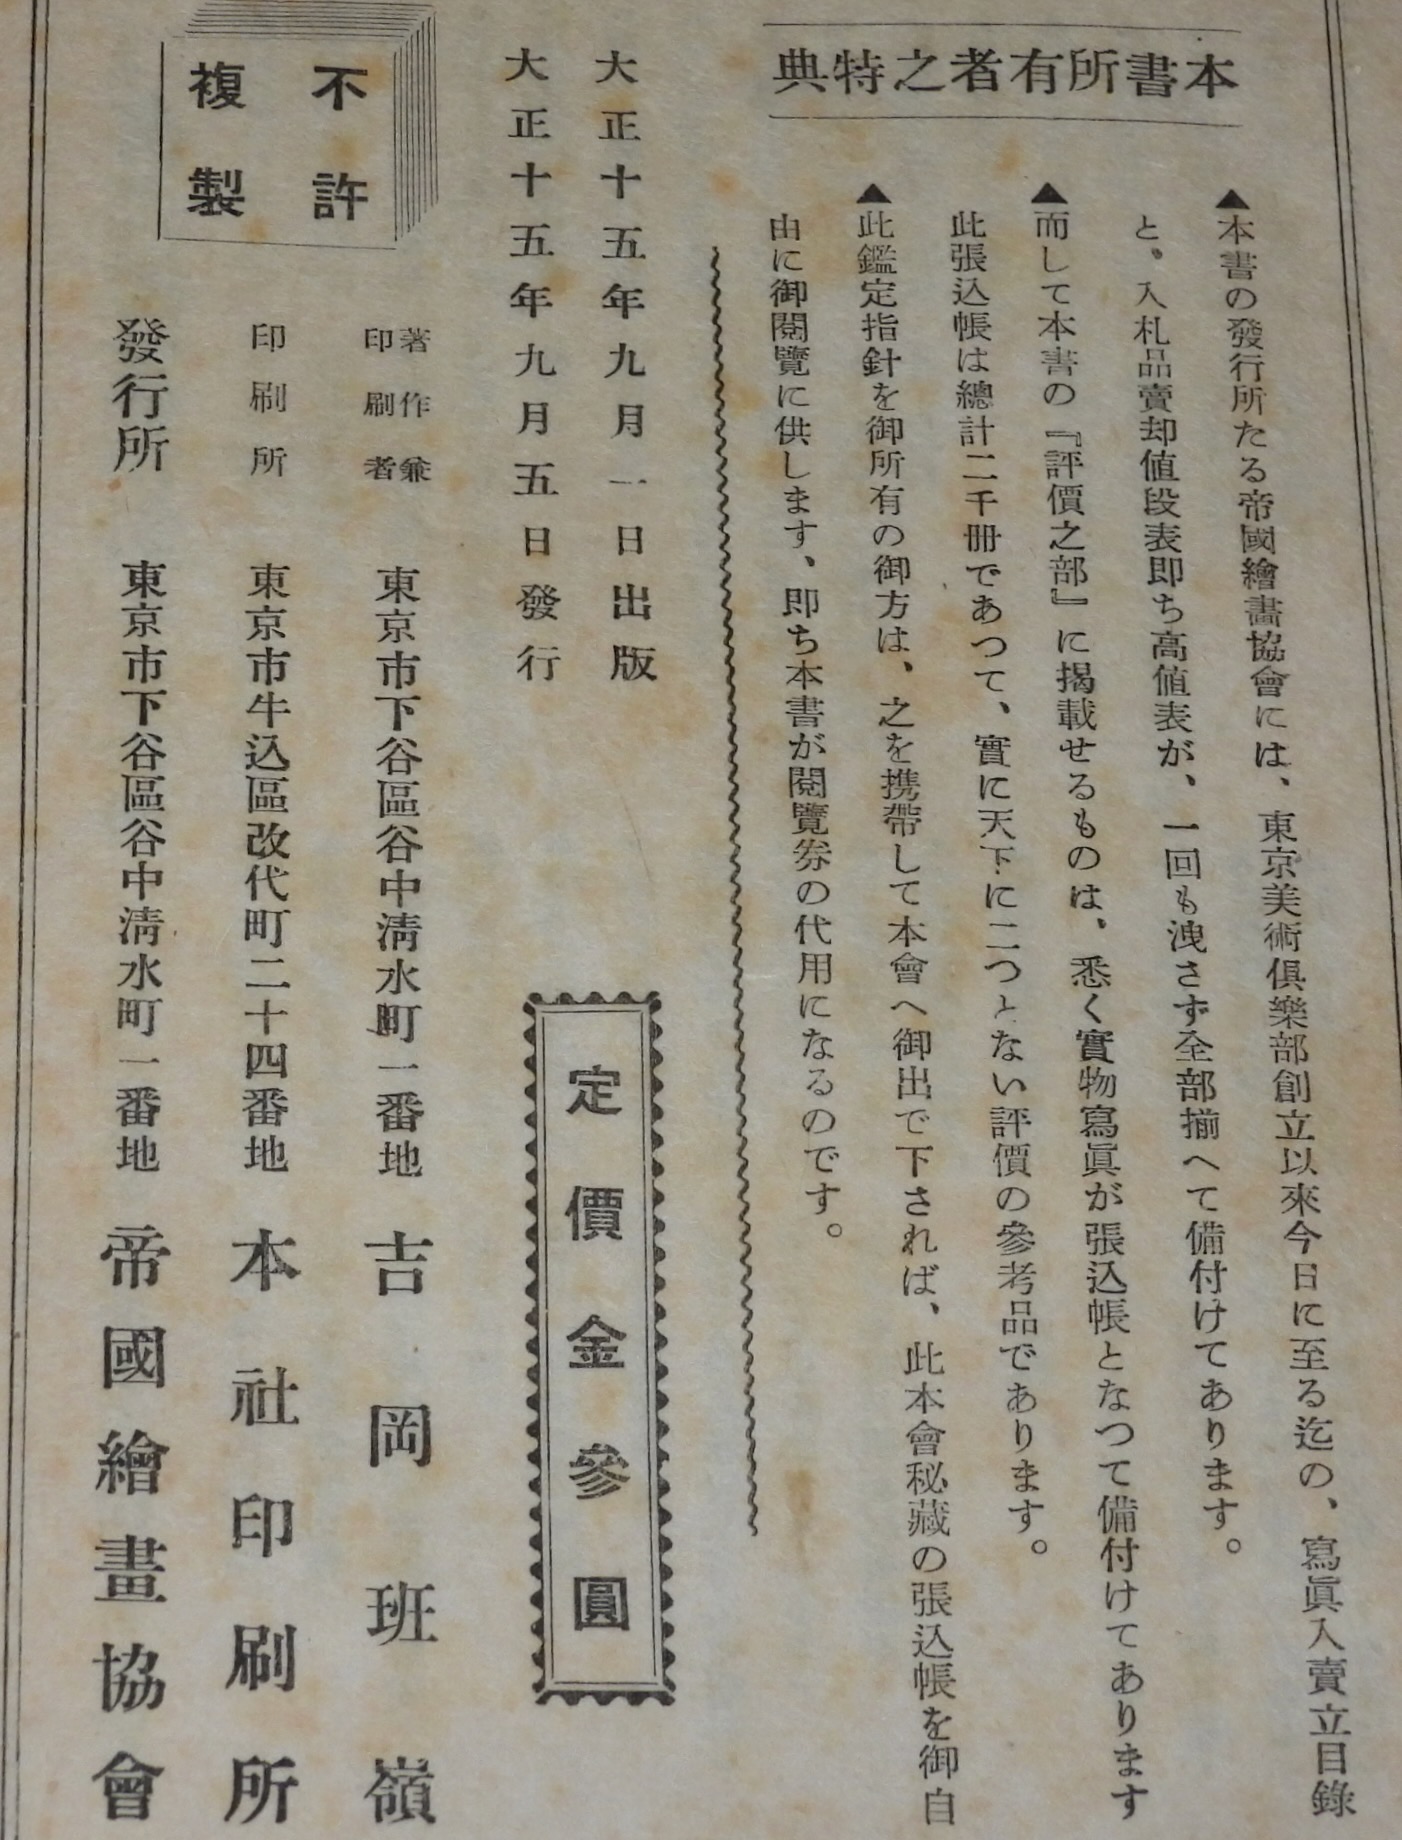 本書所有者之特典
▲本書の發行所たる帝國繪畫協會には、東京美術俱樂部創立以來今日に至る迄の、寫眞入賣立目錄
と、入札品賣却値段表即ち高値表が、一回も洩さず全部揃へて備付けてあります。
▲而して本書の『評價之部』に揭載せるものは、悉く實物寫眞が張込帳となつて備付けてあります
此張込帳は總計二千冊であつて、實に天下に二つとない評價の參考品であります。
▲此鑑定指針を御所有の御方は、之を携帶して本會へ御出で下されば、此本會秘藏の張込帳を御自
由に御閱覽に供します、即ち本書が閱覽券の代用になるのです。
大正十五年九月一日出版
大正十五年九月五日發行
定價金參圓
不許
複製
著作兼
印刷者
東京市下谷區谷中淸水町一番地
吉岡班嶺
印刷所
東京市牛込區改代町二十四番地
本社印刷所
發行所
東京市下谷區谷中淸水町一番地
帝國繪畫協會